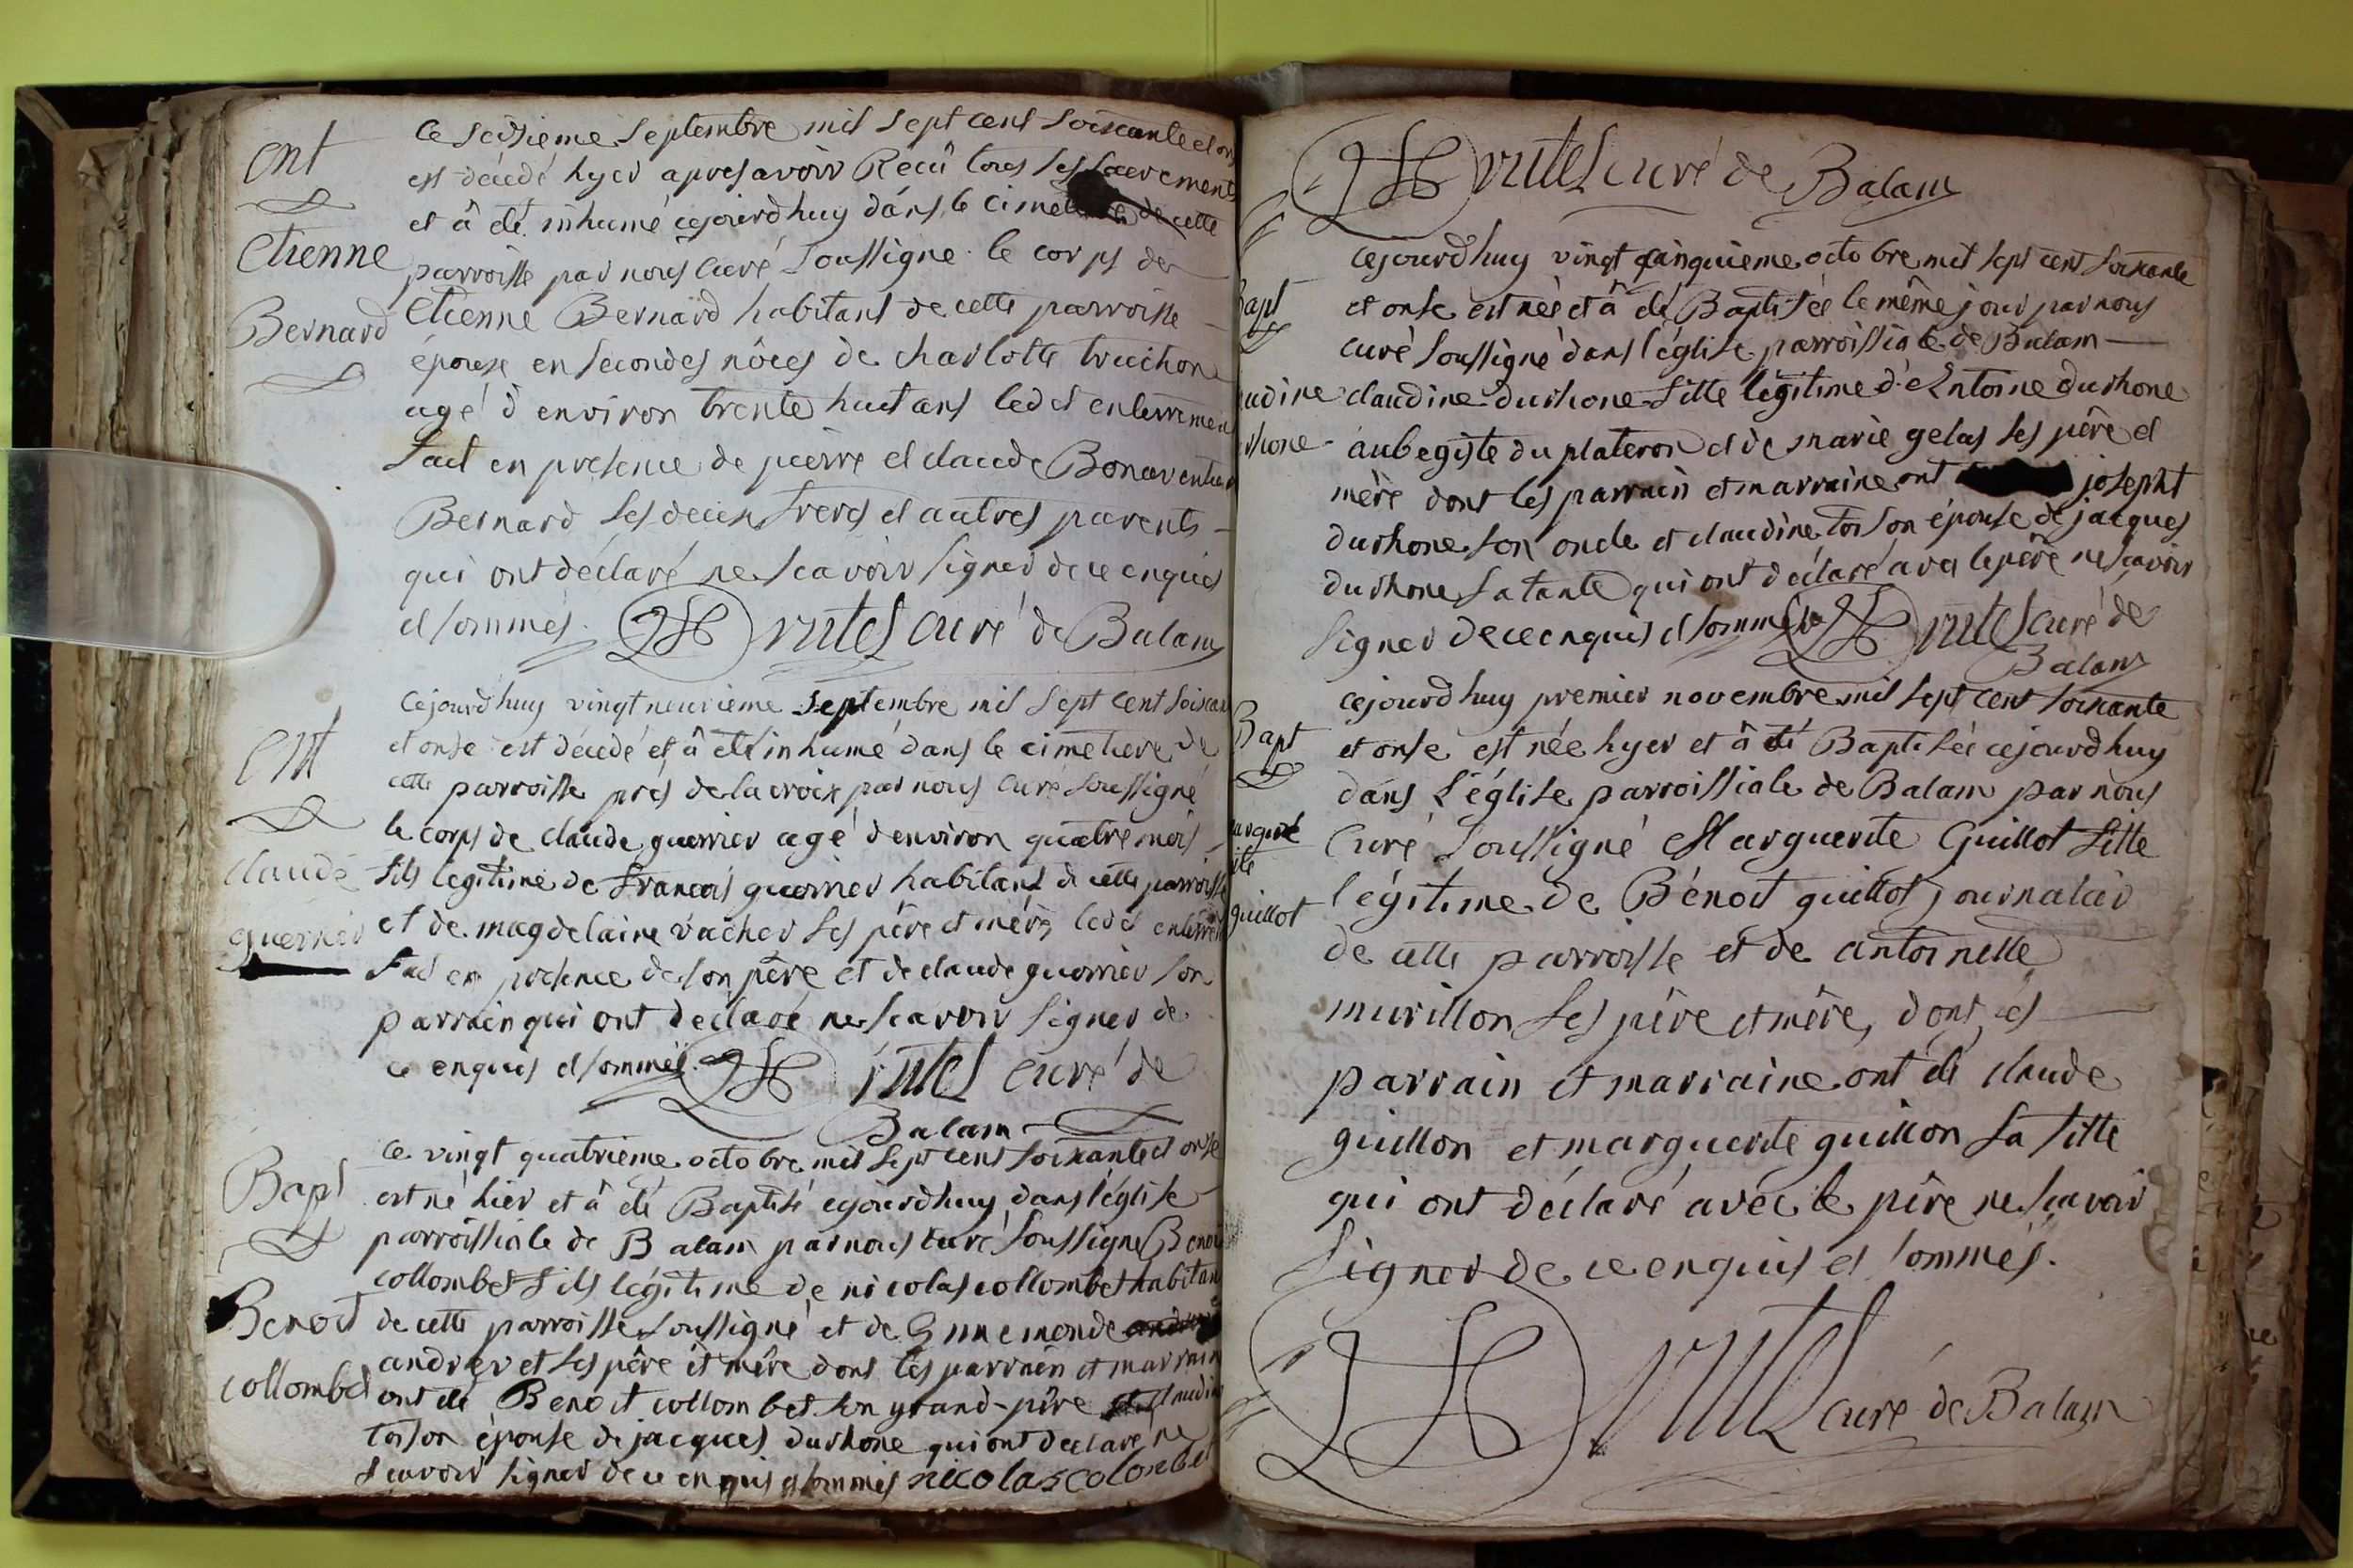 ent
Etienne
Bernard
ce seisieme septembre mil sept cent soixante et
est décédé hyer apres avoir Recû tous ses sacrements
et â été inhumé cejourdhuy dans le de cette
parroisse par nous curé soussigné le corps de
Etienne Bernard habitant de cette parroisse
épouse en secondes nôces de charlotte truchon
agé d'environ trente huit ans led et
fait en presence de pierre et claude Bonaventure
Bernard ses deux freres et autres parents
qui ont déclaré ne scavoir signer de ce enquis
et sommés. curé de Balam
ent
claude
guerrier
cejourdhuy vingt neuvieme septembre mil sept cent
et onse est décédé et â été inhumé dans le cimetiere de
cette parroisse prés de la croix par nous curé soussigné
le corps de claude guerrier agé d'environ quatre mois
fils legitime de francois guerrier habitant de cette parroisse
et de magdelaine vacher ses pére et mére led et
fait en presence de son pére et de claude guerrier son
parrain qui ont déclaré ne scavoir signer de
ce enquis et sommés. curé de
Balam
Bapt
Benoit
collombet
ce vingt quatrieme octobre mil sept cent soixante et onse
est né hier et â été Baptisé cejourdhuy dans l'église
parroissiale de Balam par nous curé soussigné Benoit
collombet fils légitime de nicolas collombet habitant
de cette parroisse soussigné et de
andrer et ses pére et mére dont les parrain et marraine
ont été Benoit collombet son grand-pére et claudine
toison épouse de jacques durhone qui ont déclaré ne
scavoir signer de ce enquis et sommés nicolas colombet
curé de Balam
Bapt
cejourdhuy vingt cinquieme octobre mil sept cent soixante
et onse est née et â été Baptisée le même jour par nous
curé soussigné dans l'église parroissiale de Balam
claudine durhone fille légitime d'Entoine durhone
aubegiste du plateron et de marie gelas ses pére et
mère dont les parrain et marraine ont josepht
durhone son oncle et claudine toison épouse de jacques
durhone sa tante qui ont déclaré avec le pére ne scavoir
signer de ce enquis et sommés curé de
Balam
Bapt
guillot
cejourdhuy premier novembre mil sept cent soixante
et onse est née hyer et â été Baptisée cejourdhuy
dans l'église parroissiale de Balam par nous
curé soussigné Marguerite Guillot fille
légitime de Bénoit guillot journalier
de cette parroisse et de antoinelle
murillon ses pére et mére, dont les
parrain et marraine ont été claude
guillon et marguerite guillon sa fille
qui ont déclaré avec le pére ne scavoir
signer de ce enquis et sommés.
curé de Balam